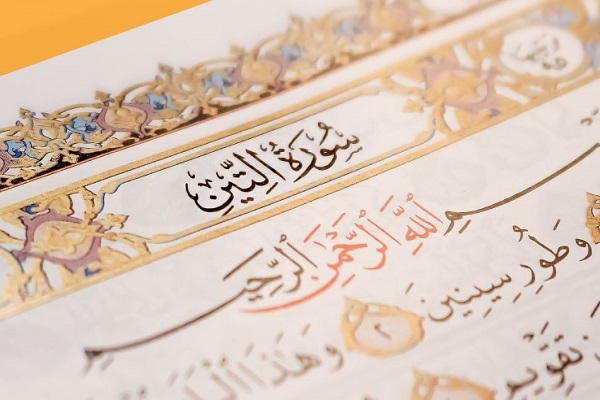 سُورَةُ التِّينِ
بِسْمِ اللَّهِ الرَّحْمَٰنِ الرَّحِيمِ
وَطُورِ سِينِينَ ٢ وَهَٰذَا
تَقْوِيمٍ